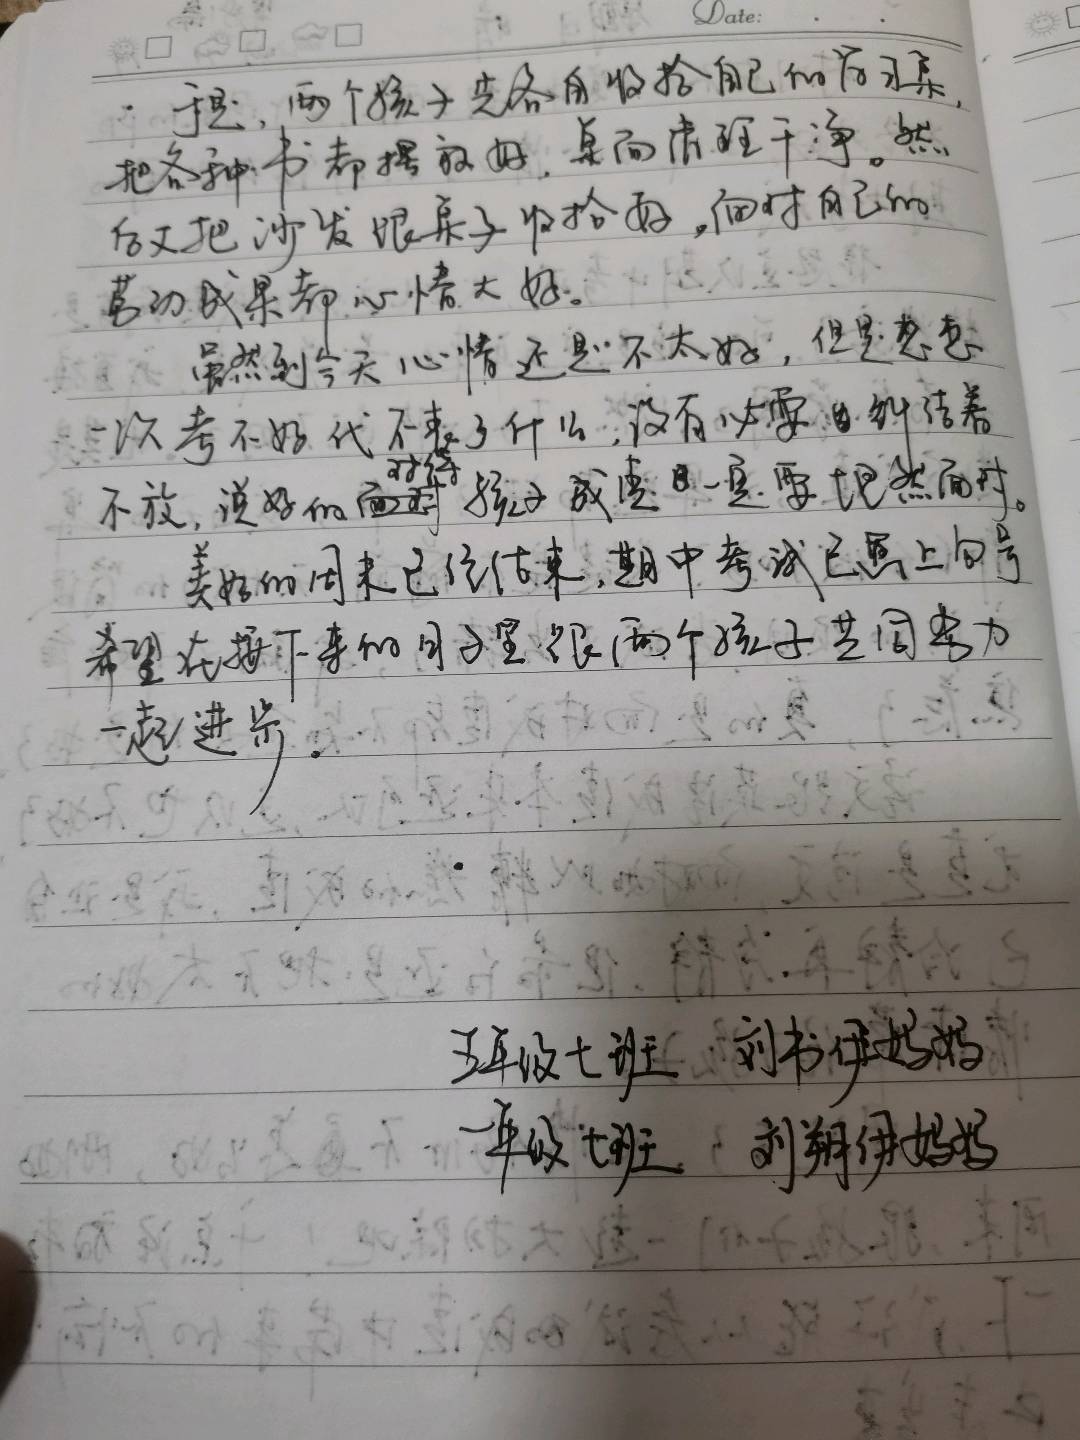 Date:
于是，两个孩子先各自收拾自己的学习桌，
把各种书都摆放好，桌面清理干净。然
后又把沙发跟桌子收拾好，面对自己的
劳动成果都心情大好。
虽然到今天心情还是不太好，但是想想
一次考不好代不表了什么，没有必要纠结着
不放，说好的面对对待孩子成绩一定要坦然面对。
美好的周末已经结束，期中考试已画上句号
希望在接下来的日子里跟两个孩子共同努力
一起进步。
五年级七班 刘书伊妈妈
一年级七班 刘朔伊妈妈